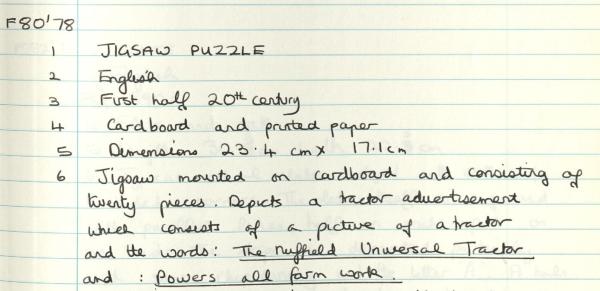 F80'78
1 JIGSAW PUZZLE
2 English
3 First half 20th century
4 Cardboard and printed paper
5 Dimensions 23.4 cm x 17.1 cm
6 Jigsaw mounted on cardboard and consisting of
twenty pieces. Depicts a tractor advertisement
which consists of a picture of a tractor
and the words: The Nuffield Universal Tractor
and : Powers all farm work.